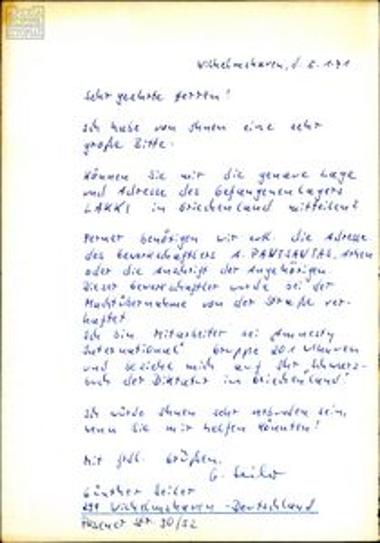 Wilhelmshaven, d. 8.1.71
Sehr geehrte Herren!
Ich habe von Ihnen eine sehr
große Bitte.
Können Sie mir die genaue Lage
und Adresse des Gefangenenlagers
LAKKI in Griechenland mitteilen?
Ferner benötigen wir evtl. die Adresse
des Gewerkschaftlers A. Athen
oder die Anschrift der Angehörigen.
Dieser Gewerkschaftler wurde bei der
Machtübernahme von der Straße ver-
haftet.
Ich bin Mitarbeiter bei Amnesty
International" Gruppe 201 W'haven
und beziehe mich auf Ihr Schwarz-
buch der Diktatur in Griechenland!
Ich würde Ihnen sehr verbunden sein,
wenn Sie mir helfen könnten!
Mit frdl. Grüßen,
G. Seiler
Günther Seiler
Wilhelmshaven - Deutschland
Posener Str. 30/32